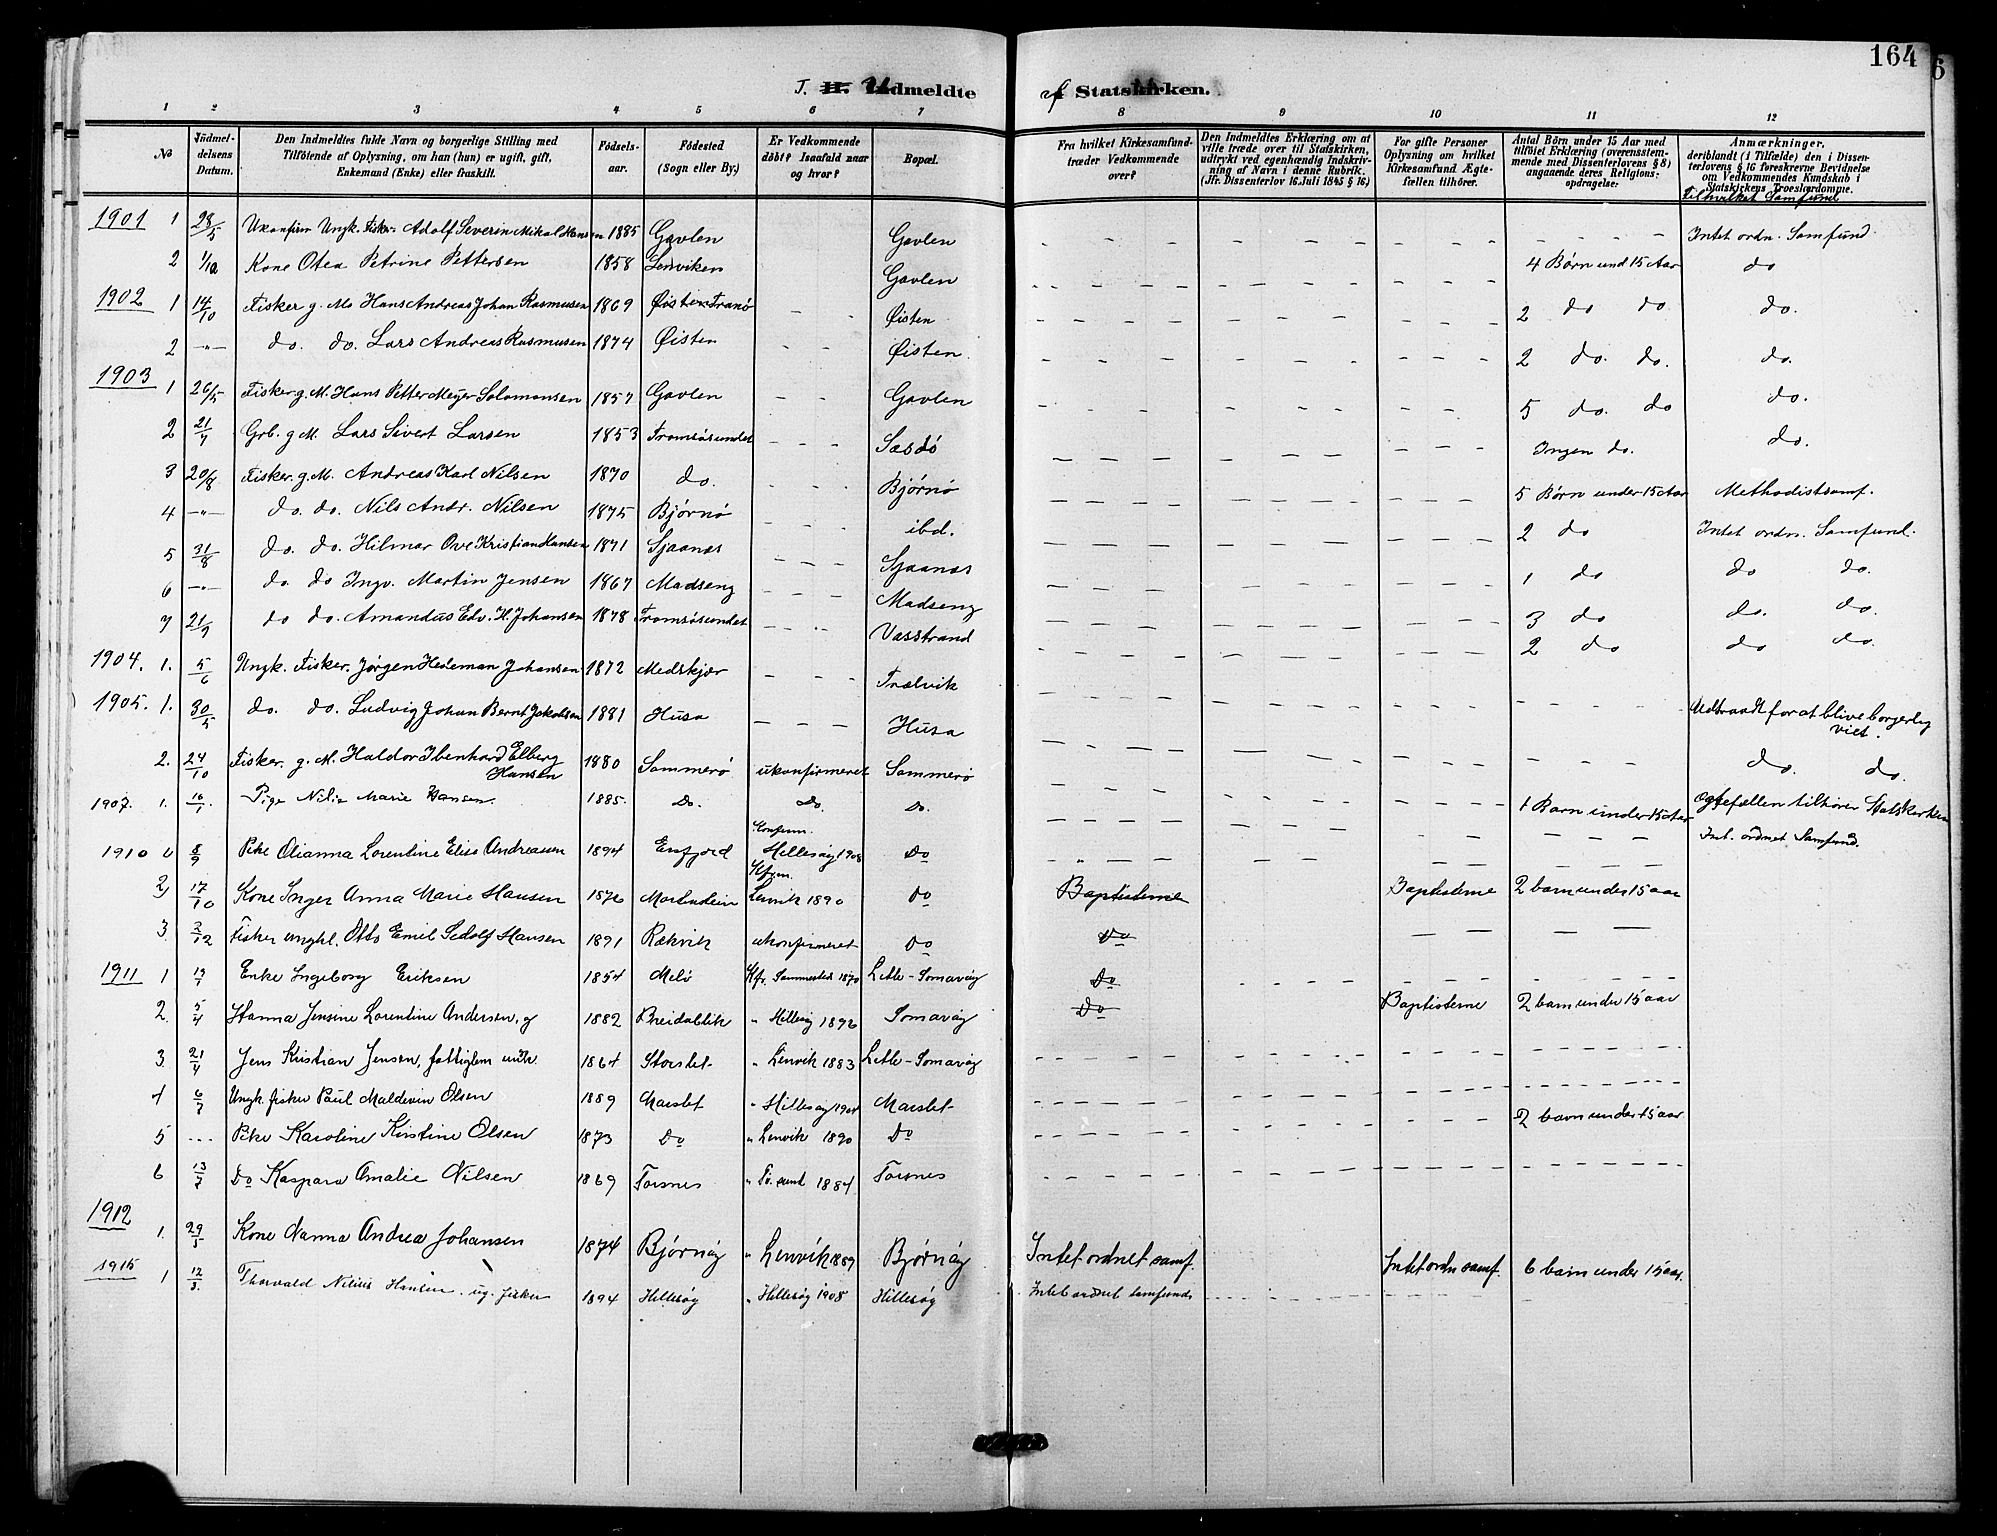 164
I. Udmeldte af Statskirken.
1 2 3 4 5 6 7 8 9 10 11 12
No
Indmeldelsens Datum.
Den Indmeldtes fulde Navn og borgerlige Stilling med
Tilföiende af Oplysning, om han (hun) er ugift, gift,
Enkemand (Enke) eller fraskilt.
Födselsaar.
Födested
(Sogn eller By.)
Er Vedkommende
döbt? Isaafald naar
og hvor?
Bopæl.
Fra hvilket Kirkesamfund
træder Vedkommende
over?
Den Indmeldtes Erklæring om at
ville træde over til Statskirken,
udtrykt ved egenhændig Indskrivning af Navn i denne Rubrik.
(Jfr. Dissenterlov 16 Juli 1845 § 16)
For gifte Personer
Oplysning om hvilket
Kirkesamfund Ægtefællen tilhörer.
Antal Börn under 15 Aar med
tilföiet Erklæring (overensstemmende med Dissenterlovens § 8)
angaaende deres Religionsopdragelse:
Anmærkninger,
deriblandt (i Tilfælde) den i Dissenterlovens § 16 foreskrevne Bevidnelse
om Vedkommendes Kundskab i
Statskirkens Troeslærdomme.
Til hvilket Samfund
1901 1 23/5 Ukonfirm Ungk. Fisker Adolf Severin Mikal Hansen 1885 Gavlen Gavlen Intet ordn. Samfund
2 1/10 Kone Otea Petrine Pettersen 1858 Lenviken Gavlen 4 Børn und 15 Aar do
1902 1 14/10 Fisker g. M. Hans Andreas Johan Rasmusen 1869 Øisten Tranø Øisten 2 do do do.
2 -"- do. do. Lars Andreas Rasmusen 1874 Øisten Øisten. 2 do. do. do.
1903 1 26/5 Fisker g. M. Hans Petter Meyer Salomonsen 1857 Gavlen Gavlen 5 do. do do.
2 21/7 Grb. g M. Lars Sivert Larsen 1853 Tromsøsundet Sasdø Ingen do. do.
3 20/8 Fisker. g. M. Andreas Karl Nilsen 1870 do. Bjørnø 5 Børn under 15 Aar Methodistsamf.
4 -"- do. do. Nils Andr. Nilsen 1875 Bjørnø ibd. 2 do Intet ordn. Samfund.
5 31/8 do. do. Hilmar Ove Kristian Hansen 1871 Sjaanes Sjaanes 1 do do do.
6 -"- do. do Ingv. Martin Jensen 1867 Madseng Madseng 3 do do. do.
7 21/9 do do. Amandus Edv. H. Johansen 1878 Tromsøsundet Vasstrand 2 do do do.
1904. 1. 5/6 Ungk. Fisker. Jørgen Hedeman Johansen 1872 Medskjær Trælvik
1905. 1. 30/5 do. do. Ludvig Johan Bernt Jakobsen 1881 Husa Husa Udtraadt for at blive borgerlig viet.
2. 24/10 Fisker. g. M. Haldor Ibenhard Elberg Hansen 1880 Sommerø ukonfirmeret Sommerø do. do.
1907. 1. 16/1 Pige Nilia Marie Hansen. 1885. Do. Do. Do. 1 Barn under 15 Aar Ægtefællen tilhører Statskirken
1910 1) 8/9 Pike Olianna Lorentine Elise Andreasen 1894 Ersfjord Konfirm. Hillesøy 1908 Do " Int. ordnet Samfund.
2) 17/10 Kone Inger Anna Marie Hansen 1876 Kfrm. Lenvik 1890 Do Baptisterne Baptisterne 2 barn under 15 aar
3. 2/12 Fisker ungkl. Otto Emil Sedolf Hansen 1891 Rækvik ukonfirmeret Do Do
1911 1 Enke Ingeborg Eriksen 1854 Melø Kfr. 1870 Litle-Somarøy Do
2. 5/4 Hanna Jensine Lorentine Andersen, g 1882 Breidablik " Hillesøy 1896 Somarøy Do Baptisterne 2 barn under 15 aar
3. 21/4 Jens Kristian Jensen, fattiglem 1864 Storslet " Lenvik 1883 Litle-Somarøy
4 6/7 Ungk. fisker Paul Malderin Olsen 1889 Marslet " Hillesøy 1904 Marslet
5 Pike Karoline Kirstine Olsen 1873 Do " Lenvik 1890 Do 2 barn under 15 aar.
6 13/7 Do Kaspara Amalie Nilsen 1869 Torsnes " Tr. sund 1884 Torsnes
1912 1. 29/5 Kone Nanna Andrea Johansen 1874 Bjørnøy " Lenvik 1889 Bjørnøy Intet ordnet samf. Intet ordn samf. 6 barn under 15 aar.
1915 1 12/3 Thorvald Nilius Hansen. ug. fisker 1894 Hillesøy " Hillesøy 1908 Hillesøy Intet ordnet samfund